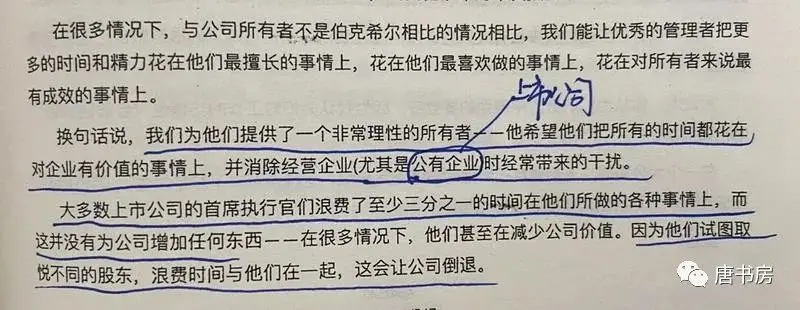 在很多情况下，与公司所有者不是伯克希尔相比的情况相比，我们能让优秀的管理者把更
多的时间和精力花在他们最擅长的事情上，花在他们最喜欢做的事情上，花在对所有者来说最
有成效的事情上。
上市公司
换句话说，我们为他们提供了一个非常理性的所有者——他希望他们把所有的时间都花在
对企业有价值的事情上，并消除经营企业(尤其是公有企业)时经常带来的干扰。
大多数上市公司的首席执行官们浪费了至少三分之一的时间在他们所做的各种事情上，而
这并没有为公司增加任何东西——在很多情况下，他们甚至在减少公司价值。因为他们试图取
悦不同的股东，浪费时间与他们在一起，这会让公司倒退。
唐书房